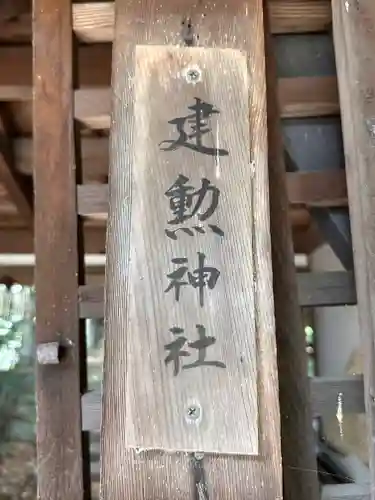 建勲神社